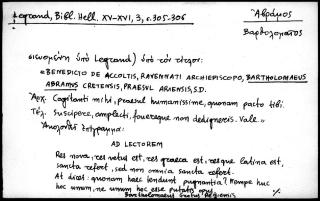 Legrand, Bibl. Hell. XV-XVI, 3, σ. 305-306
Ἄβραμος
Βαρθολομαῖος
ὑπὸ Legrand) ὑπὸ τὸν τίτλον:
«BENEDICTO DE ACCOLTIS, RAVENNATI ARCHIEPISCOPO, BARTHOLOMAEUS
ABRAMUS CRETENSIS, PRAESUL ARIENSIS, S.D.
Ἀρχ. Cogitanti mihi, praesul humanissime, quonam pacto tibi.
Τέλ. Suscipere, amplecti, fovereque non dedigneris. Vale.»
Ἀκολουθεῖ ἐπίγραμμα:
AD LECTOREM
Res nova, res vetus est, res graeca est, resque latina est,
sancta refert, sed non omnia sancta refert.
At dices: quonam haec tendunt pugnantia? Nempe huc
hoc unum, ne unum hoc esse putatis opus
Bartholomaeus